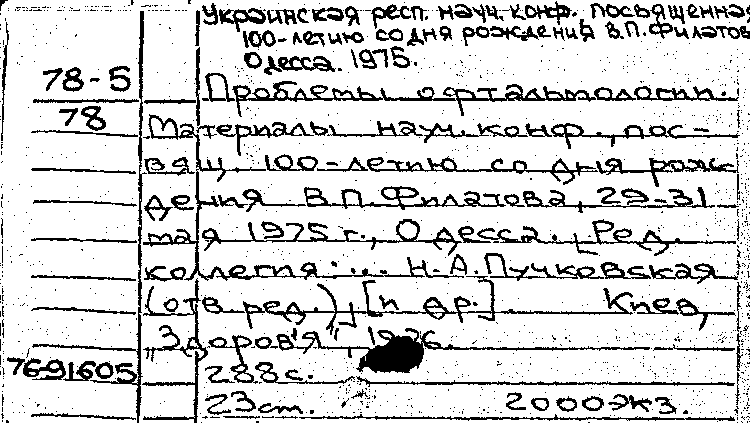 Украинская респ. науч. конф., посвященная
100-летию со дня рождения В.П. Филатов
Одесса. 1975.
78-5 Проблемы офтальмологии.
78 Материалы науч. конф., пос-
вящ. 100-летию со дня рож-
дения В.П. Филатова, 29-31
мая 1975 г., Одесса. [Ред.
коллегия: ... Н.А. Пучковская
(отв. ред.)] [и др.]. Киев,
„Здоров'я", 1976.
76-91605 288 с.
23 cm. 2000 экз.